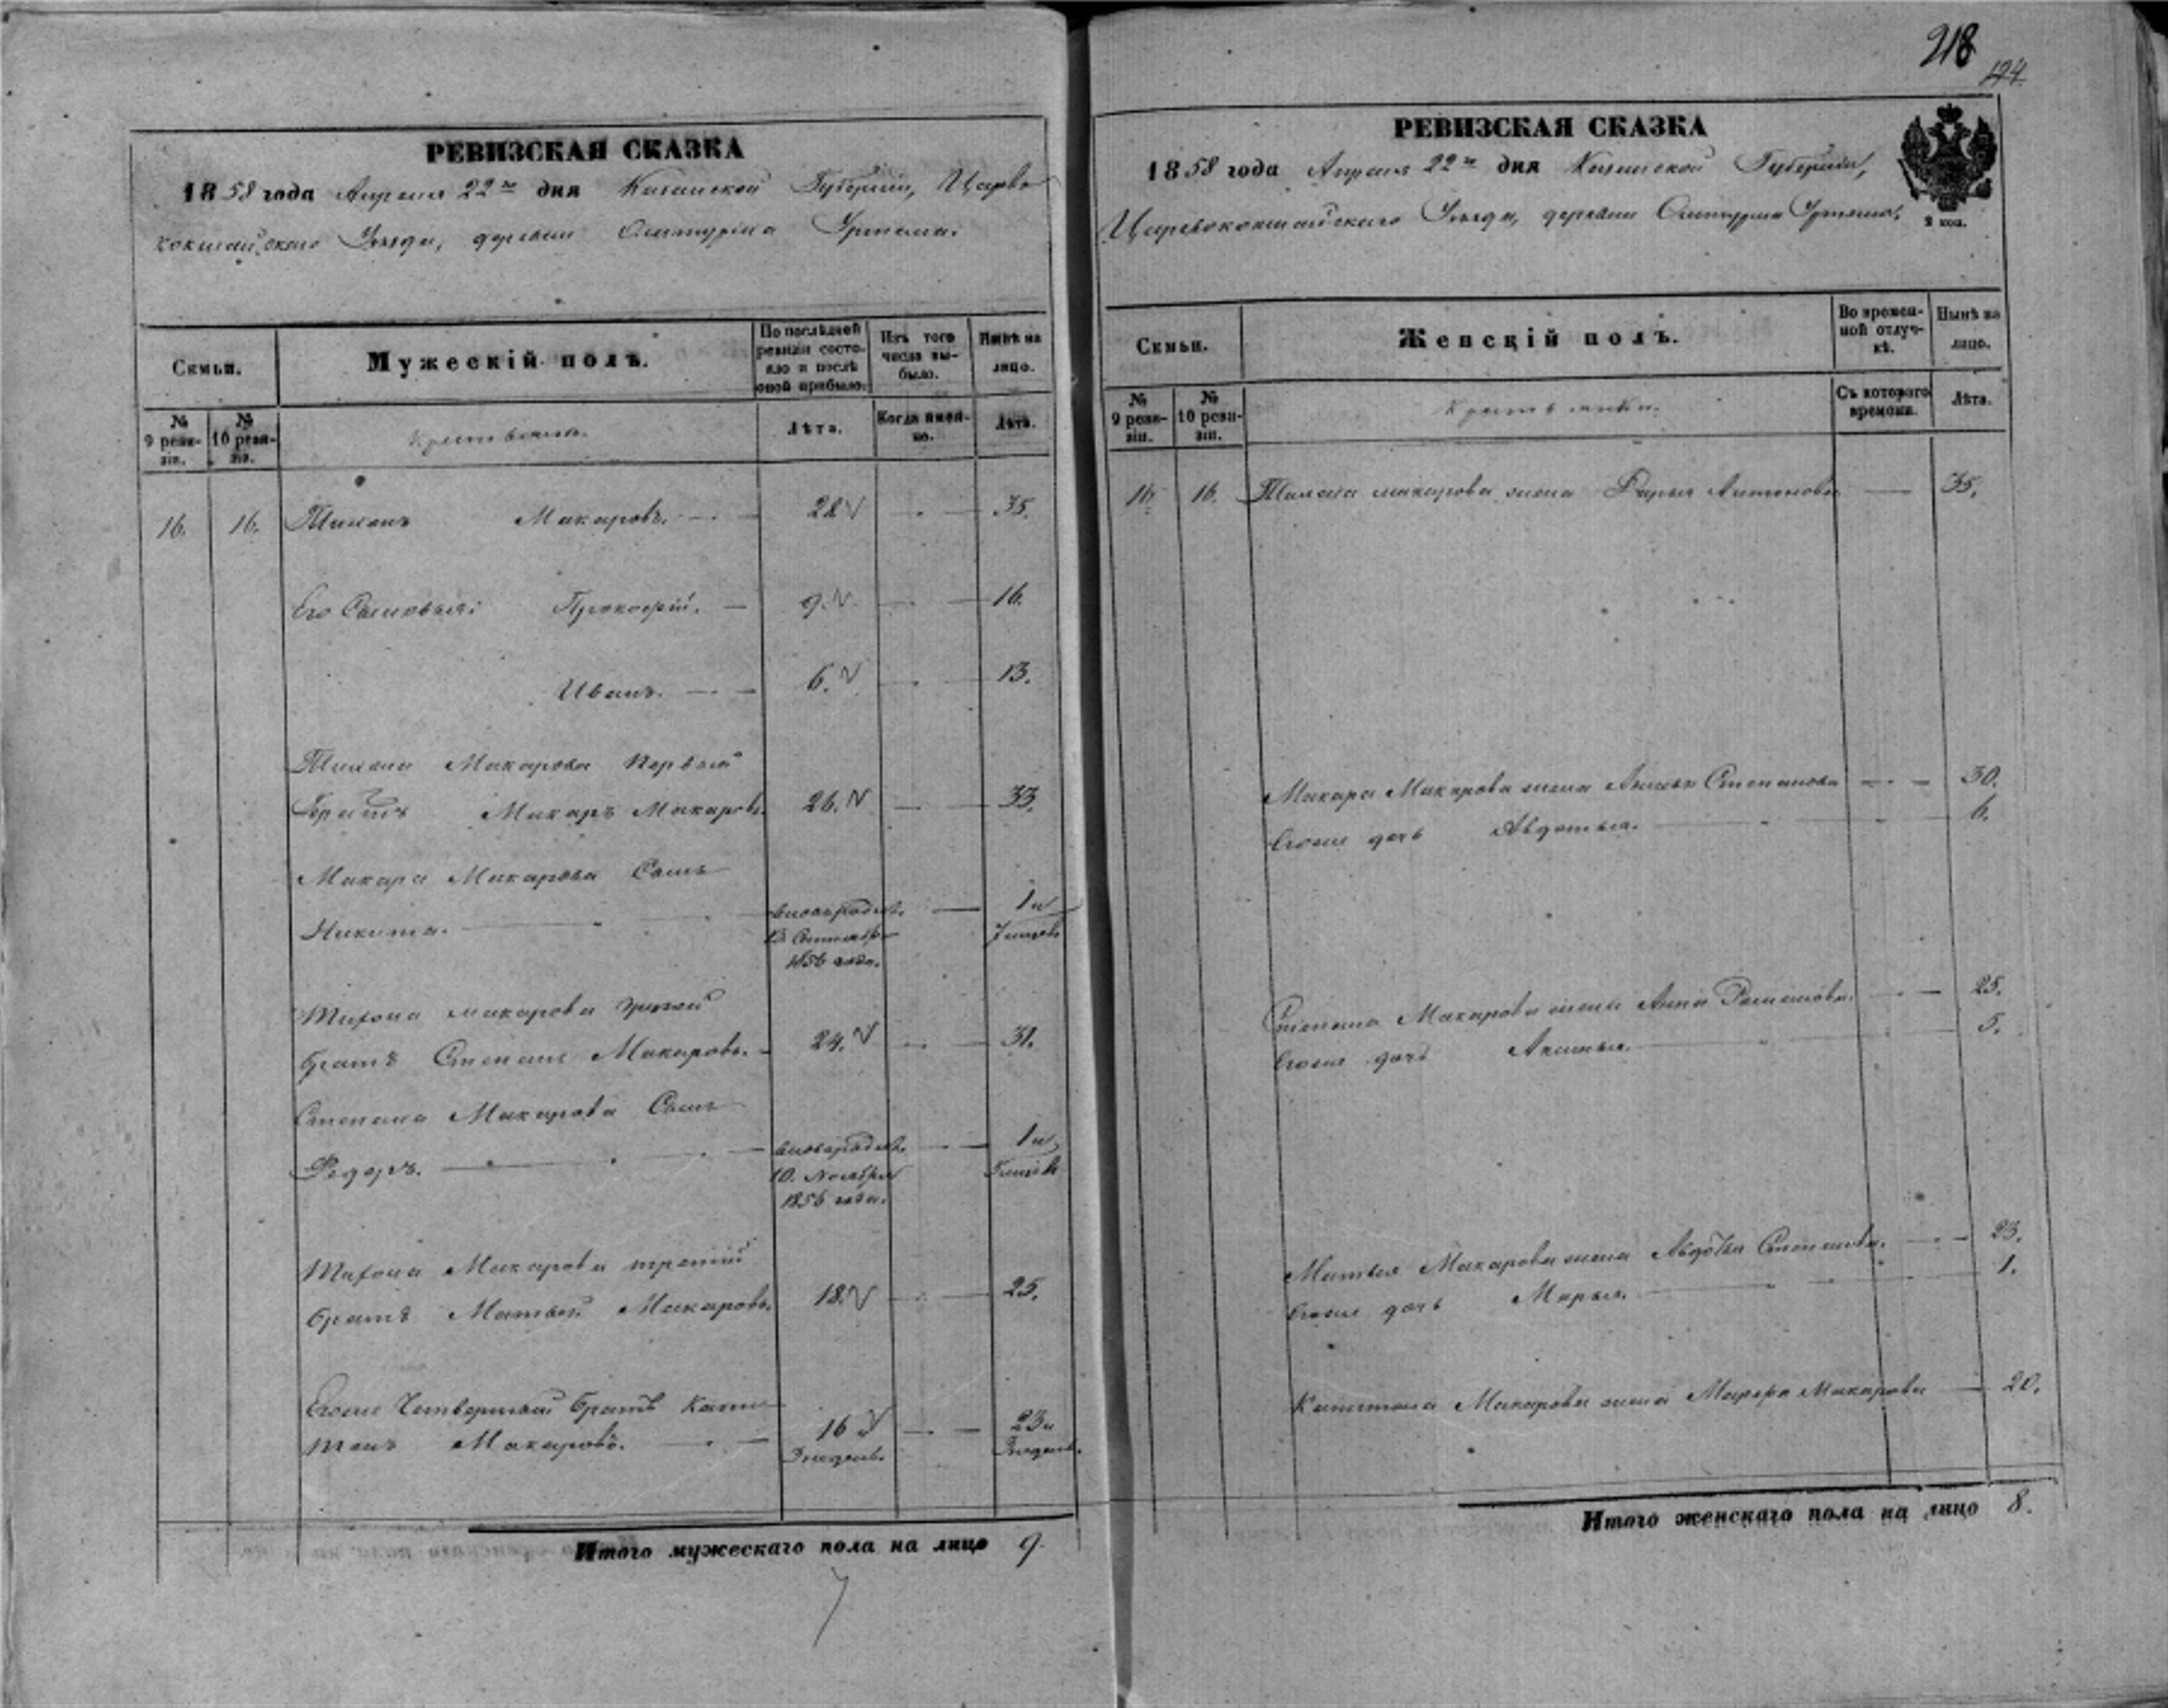 218
194
РЕВИЗСКАЯ СКАЗКА
1858 года Апреля 22го дня Казанской Губернии, Царево
кокшайского Уезда, деревни
Семьи.
Мужескій полъ.
По послѣдней ревизіи состояло и послѣ оной прибыло.
Изъ того числа выбыло.
Нынѣ на лицо.
№ 9 ревизіи.
№ 10 ревизіи.
Крестьяне.
Лѣта.
Когда именно.
Лѣта.
16. 16. Макаровъ. 28 35.
Его Сыновья: Прокофій. 9. 16.
Иванъ. 6. 13.
Макарова первый
братъ Макаръ Макаровъ. 26. 33.
Макара Макарова Сынъ
Никита. вновьрожд. 1 и
13. Сентября 7 месяцов
1856 года.
Тихона Макарова другой
братъ Степанъ Макаровъ. 24. 31.
Степана Макарова Сынъ
Федоръ. вновьрожд. 1 и
10. Ноября
1856 года.
Тихона Макарова третий
братъ Матвей Макаровъ. 18. 25.
Егоже Четвертый братъ Капи
тонъ Макаровъ. 16 23 и
недель. недель.
Итого мужескаго пола на лицо 9
РЕВИЗСКАЯ СКАЗКА
1858 года Апреля 22го дня Казанской Губернии,
Царевококшайского Уезда, деревни
2 коп.
Семьи.
Женскій полъ.
Во временной отлучкѣ.
Нынѣ на лицо.
№ 9 ревизіи.
№ 10 ревизіи.
Съ котораго времени.
Лѣта.
16 16. Макарова жена Дарья Антонова 35.
Макара Макарова жена Степанова 30.
Егоже дочь Авдотья. 6.
Степана Макарова жена Анна 25.
Егоже дочь Аксинья. 5.
Матвея Макарова жена Степанова. 23.
Егоже дочь Марья. 1.
Капитона Макарова жена Марфа Макарова 20.
Итого женскаго пола на лицо 8.